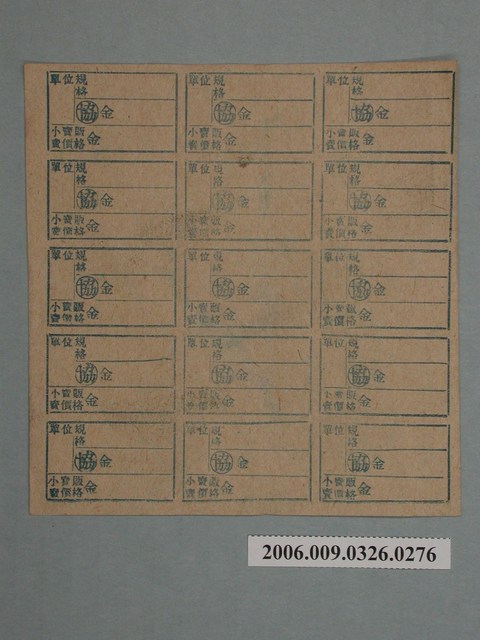 單位規格
協 金
小賣販賣價格 金
單位規格
協 金
小賣販賣價格 金
單位規格
協 金
小賣販賣價格 金
單位規格
協 金
小賣販賣價格 金
單位規格
協 金
小賣販賣價格 金
單位規格
協 金
小賣販賣價格 金
單位規格
協 金
小賣販賣價格 金
單位規格
協 金
小賣販賣價格 金
單位規格
協 金
小賣販賣價格 金
單位規格
協 金
小賣販賣價格 金
單位規格
協 金
小賣販賣價格 金
單位規格
協 金
小賣販賣價格 金
單位規格
協 金
小賣販賣價格 金
單位規格
協 金
小賣販賣價格 金
單位規格
協 金
小賣販賣價格 金
2006.009.0326.0276